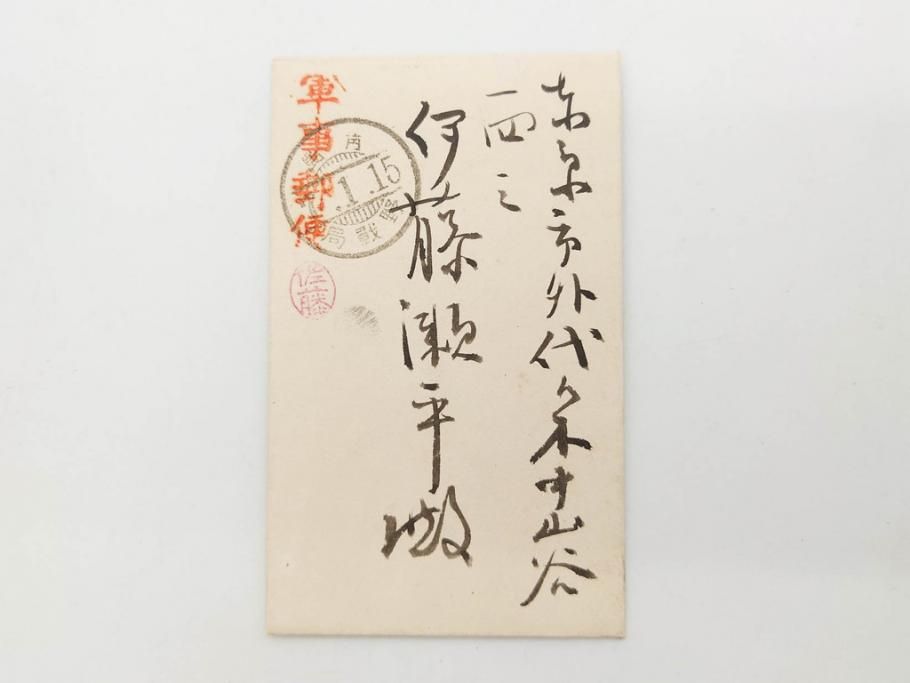 東京市外代々木山谷
一四二
伊藤瀬平殿
軍事郵便
1.15
野戰局
佐藤